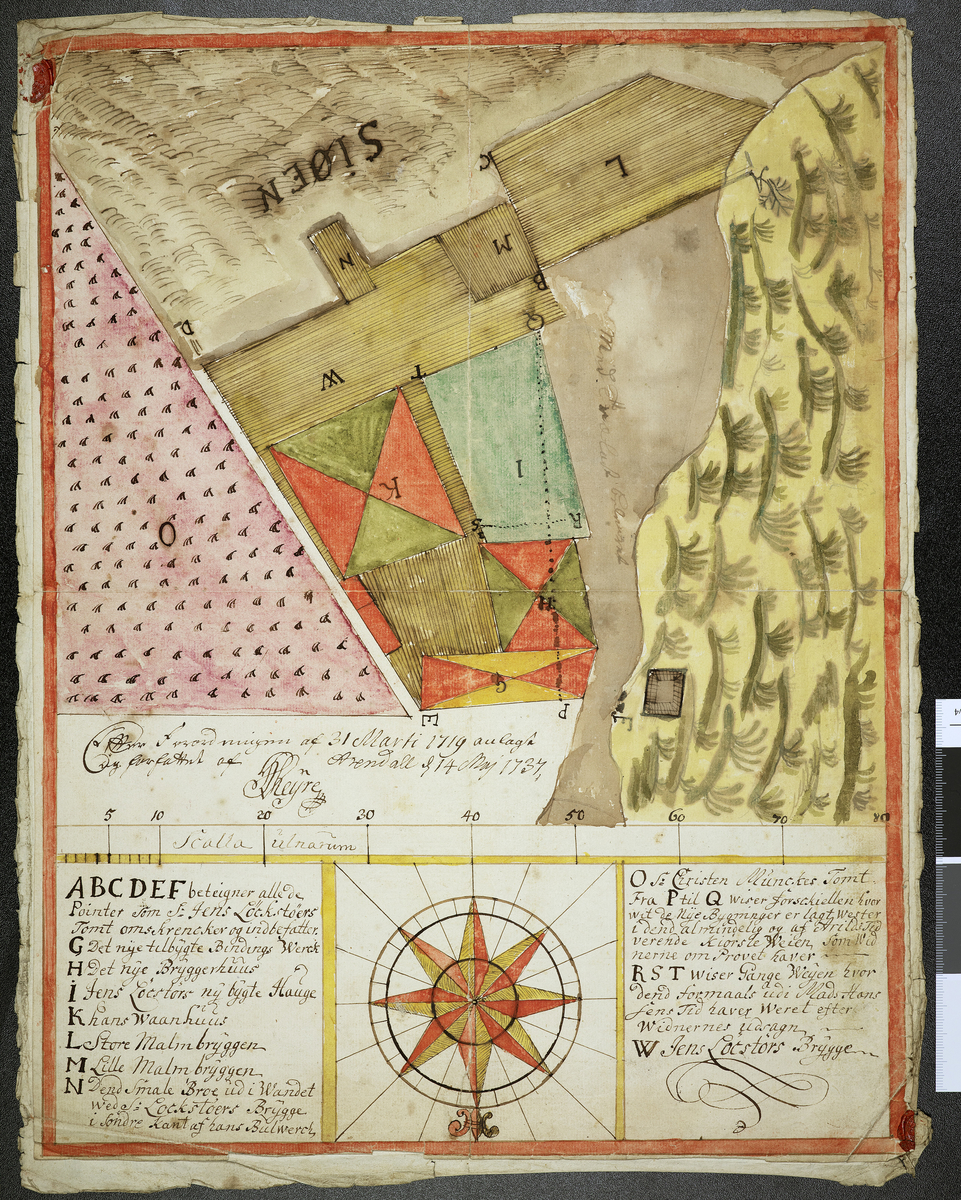 SiØEN
K
L
M
N
B
D
Q
W
T
I
K
S
R
O
H
G
E
P
F
Efter Forordningen af 31 Marti 1719 anlagt
og forfattet af Arendall d 14 May 1737,
5 10 20 30 40 50 60 70 80
Scalla Ulnarum
ABCDEF beteigner alle de
Pointer som Sr Jens Löckstörs
Tomt omskrencker og indbefatter.
G Det nÿe tilbÿgte Bindings Werck
H det nÿe Brÿggerhuus
i Jens Löcstörs nÿ bÿgte Hauge
K hans Waanhuus
L Store Malmbrÿggen
M Lille Malmbrÿggen
N Dend Smale Broe ud i Wandet
wed Sr Lockstöers Brÿgge
i Söndre Kant af hans Bulwerch,
O Sr Christen Munckes Tomt
Fra P til Q wiser forschiellen hvor
wit de Nÿe Bÿgninger er lagt Wester
i dend almindelig og af Arilds Tid
verende Kiörsle Weien, som Wid
nerne om Provet haver
R S T wiser Gange Weÿen hvor
dend formaals udi Mads Hans
sens Tid haver Weret efter
Widnernes udsagn
W Jens Löcstörs Brÿgge